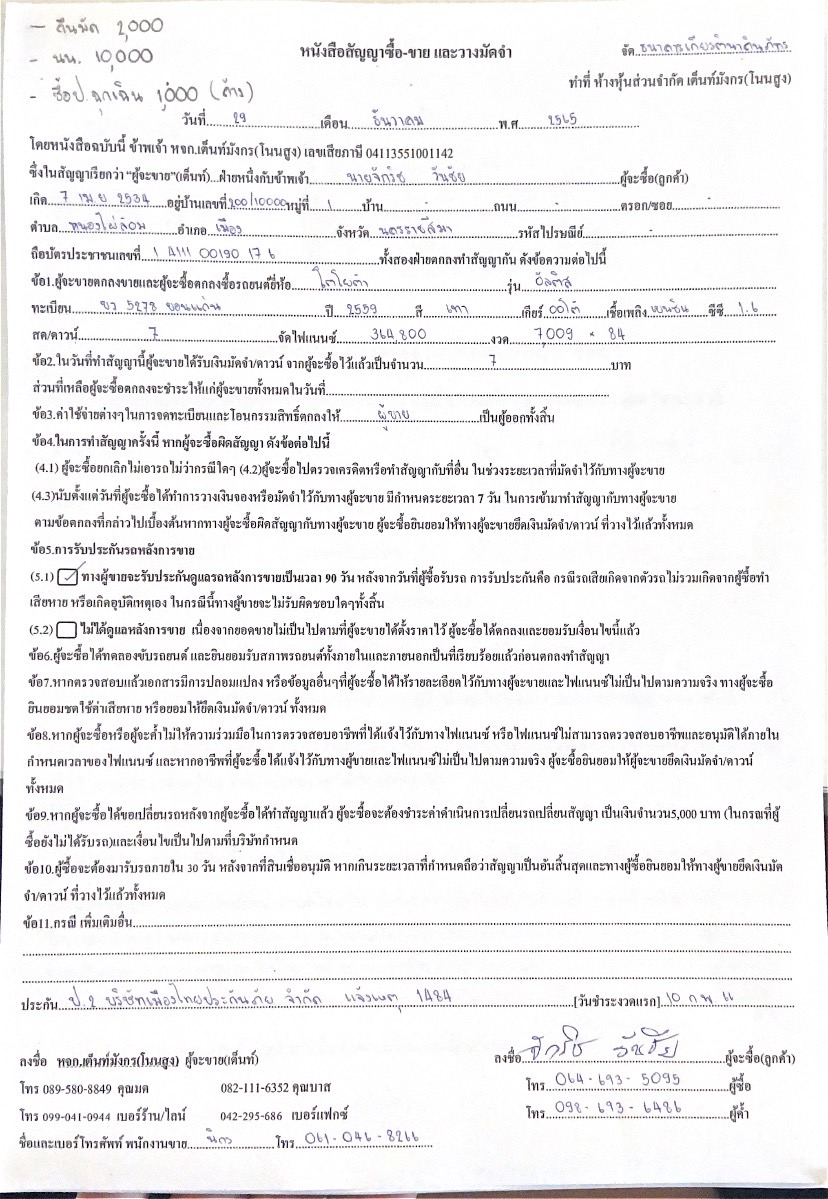 - คืนมัด 2,000
- นน. 10,000
- ช็อป ฉุกเฉิน 1,000 (ค้าง)
หนังสือสัญญาซื้อ-ขาย และวางมัดจำ
จัด ธนาคารเกียรตินาคินภัทร
ทำที่ ห้างหุ้นส่วนจำกัด เต็นท์มังกร(โนนสูง)
วันที่ 29 เดือน ธันวาคม พ.ศ 2565
โดยหนังสือฉบับนี้ ข้าพเจ้า หจก.เต็นท์มังกร(โนนสูง) เลขเสียภาษี 04113551001142
ซึ่งในสัญญาเรียกว่า "ผู้จะขาย"(เต็นท์)...ฝ่ายหนึ่งกับข้าพเจ้า นายจักริช วันชัย ผู้จะซื้อ(ลูกค้า)
เกิด 7 เม.ย 2534 อยู่บ้านเลขที่ 200/10000 หมู่ที่ 1 บ้าน - ถนน - ตรอก/ซอย -
ตำบล หนองไผ่ล้อม อำเภอ เมือง จังหวัด นครราชสีมา รหัสไปรษณีย์
ถือบัตรประชาชนเลขที่ 1 4111 00190 17 6 ทั้งสองฝ่ายตกลงทำสัญญากัน ดังข้อความต่อไปนี้
ข้อ1.ผู้จะขายตกลงขายและผู้จะซื้อตกลงซื้อรถยนต์ยี่ห้อ โตโยต้า รุ่น อัลติส
ทะเบียน ขว 5278 ขอนแก่น ปี 2559 สี เทา เกียร์ ออโต้ เชื้อเพลิง เบนซิน ซีซี 1.6
สด/ดาวน์ 7 จัดไฟแนนซ์ 364,800 งวด 7,009 × 84
ข้อ2.ในวันที่ทำสัญญานี้ผู้จะขายได้รับเงินมัดจำ/ดาวน์ จากผู้จะซื้อไว้แล้วเป็นจำนวน 7 บาท
ส่วนที่เหลือผู้จะซื้อตกลงจะชำระให้แก่ผู้จะขายทั้งหมดในวันที่
ข้อ3.ค่าใช้จ่ายต่างๆในการจดทะเบียนและโอนกรรมสิทธิ์ตกลงให้ ผู้ขาย เป็นผู้ออกทั้งสิ้น
ข้อ4.ในการทำสัญญาครั้งนี้ หากผู้จะซื้อผิดสัญญา ดังข้อต่อไปนี้
(4.1) ผู้จะซื้อยกเลิกไม่เอารถไม่ว่ากรณีใดๆ (4.2)ผู้จะซื้อไปตรวจเครดิตหรือทำสัญญากับที่อื่น ในช่วงระยะเวลาที่มัดจำไว้กับทางผู้จะขาย
(4.3)นับตั้งแต่วันที่ผู้จะซื้อได้ทำการวางเงินจองหรือมัดจำไว้กับทางผู้จะขาย มีกำหนดระยะเวลา 7 วัน ในการเข้ามาทำสัญญากับทางผู้จะขาย
ตามข้อตกลงที่กล่าวไปเบื้องต้นหากทางผู้จะซื้อผิดสัญญากับทางผู้จะขาย ผู้จะซื้อยินยอมให้ทางผู้จะขายยึดเงินมัดจำ/ดาวน์ ที่วางไว้แล้วทั้งหมด
ข้อ5.การรับประกันรถหลังการขาย
(5.1) ✓ ทางผู้ขายจะรับประกันดูแลรถหลังการขายเป็นเวลา 90 วัน หลังจากวันที่ผู้ซื้อรับรถ การรับประกันคือ กรณีรถเสียเกิดจากตัวรถไม่รวมเกิดจากผู้ซื้อทำ
เสียหาย หรือเกิดอุบัติเหตุเอง ในกรณีนี้ทางผู้ขายจะไม่รับผิดชอบใดๆทั้งสิ้น
(5.2) ไม่ได้ดูแลหลังการขาย เนื่องจากยอดขายไม่เป็นไปตามที่ผู้จะขายได้ตั้งราคาไว้ ผู้จะซื้อได้ตกลงและยอมรับเงื่อนไขนี้แล้ว
ข้อ6.ผู้จะซื้อได้ทดลองขับรถยนต์ และยินยอมรับสภาพรถยนต์ทั้งภายในและภายนอกเป็นที่เรียบร้อยแล้วก่อนตกลงทำสัญญา
ข้อ7.หากตรวจสอบแล้วเอกสารมีการปลอมแปลง หรือข้อมูลอื่นๆที่ผู้จะซื้อได้ให้รายละเอียดไว้กับทางผู้จะขายและไฟแนนซ์ไม่เป็นไปตามความจริง ทางผู้จะซื้อ
ยินยอมชดใช้ค่าเสียหาย หรือยอมให้ยึดเงินมัดจำ/ดาวน์ ทั้งหมด
ข้อ8.หากผู้จะซื้อหรือผู้จะค้ำไม่ให้ความร่วมมือในการตรวจสอบอาชีพที่ได้แจ้งไว้กับทางไฟแนนซ์ หรือไฟแนนซ์ไม่สามารถตรวจสอบอาชีพและอนุมัติได้ภายใน
กำหนดเวลาของไฟแนนซ์ และหากอาชีพที่ผู้จะซื้อได้แจ้งไว้กับทางผู้ขายและไฟแนนซ์ไม่เป็นไปตามความจริง ผู้จะซื้อยินยอมให้ผู้จะขายยึดเงินมัดจำ/ดาวน์
ทั้งหมด
ข้อ9.หากผู้จะซื้อได้ขอเปลี่ยนรถหลังจากผู้จะซื้อได้ทำสัญญาแล้ว ผู้จะซื้อจะต้องชำระค่าดำเนินการเปลี่ยนรถเปลี่ยนสัญญา เป็นเงินจำนวน5,000 บาท (ในกรณีที่ผู้
ซื้อยังไม่ได้รับรถ)และเงื่อนไขเป็นไปตามที่บริษัทกำหนด
ข้อ10.ผู้ซื้อจะต้องมารับรถภายใน 30 วัน หลังจากที่สินเชื่ออนุมัติ หากเกินระยะเวลาที่กำหนดถือว่าสัญญาเป็นอันสิ้นสุดและทางผู้ซื้อยินยอมให้ทางผู้ขายยึดเงินมัด
จำ/ดาวน์ ที่วางไว้แล้วทั้งหมด
ข้อ11.กรณี เพิ่มเติมอื่น
ประกัน ป.2 บริษัทเมืองไทยประกันภัย จำกัด แจ้งเหตุ 1484 [วันชำระงวดแรก] 10 ก.พ. 66
ลงชื่อ หจก.เต็นท์มังกร(โนนสูง) ผู้จะขาย(เต็นท์)
ลงชื่อ จักริช วันชัย ผู้จะซื้อ(ลูกค้า)
โทร 089-580-8849 คุณมด 082-111-6352 คุณบาส
โทร 064-693-5095 ผู้ซื้อ
โทร 099-041-0944 เบอร์ร้าน/ไลน์ 042-295-686 เบอร์แฟกซ์
โทร 098-693-6486 ผู้ค้ำ
ชื่อและเบอร์โทรศัพท์ พนักงานขาย นิกร โทร 061-046-8266